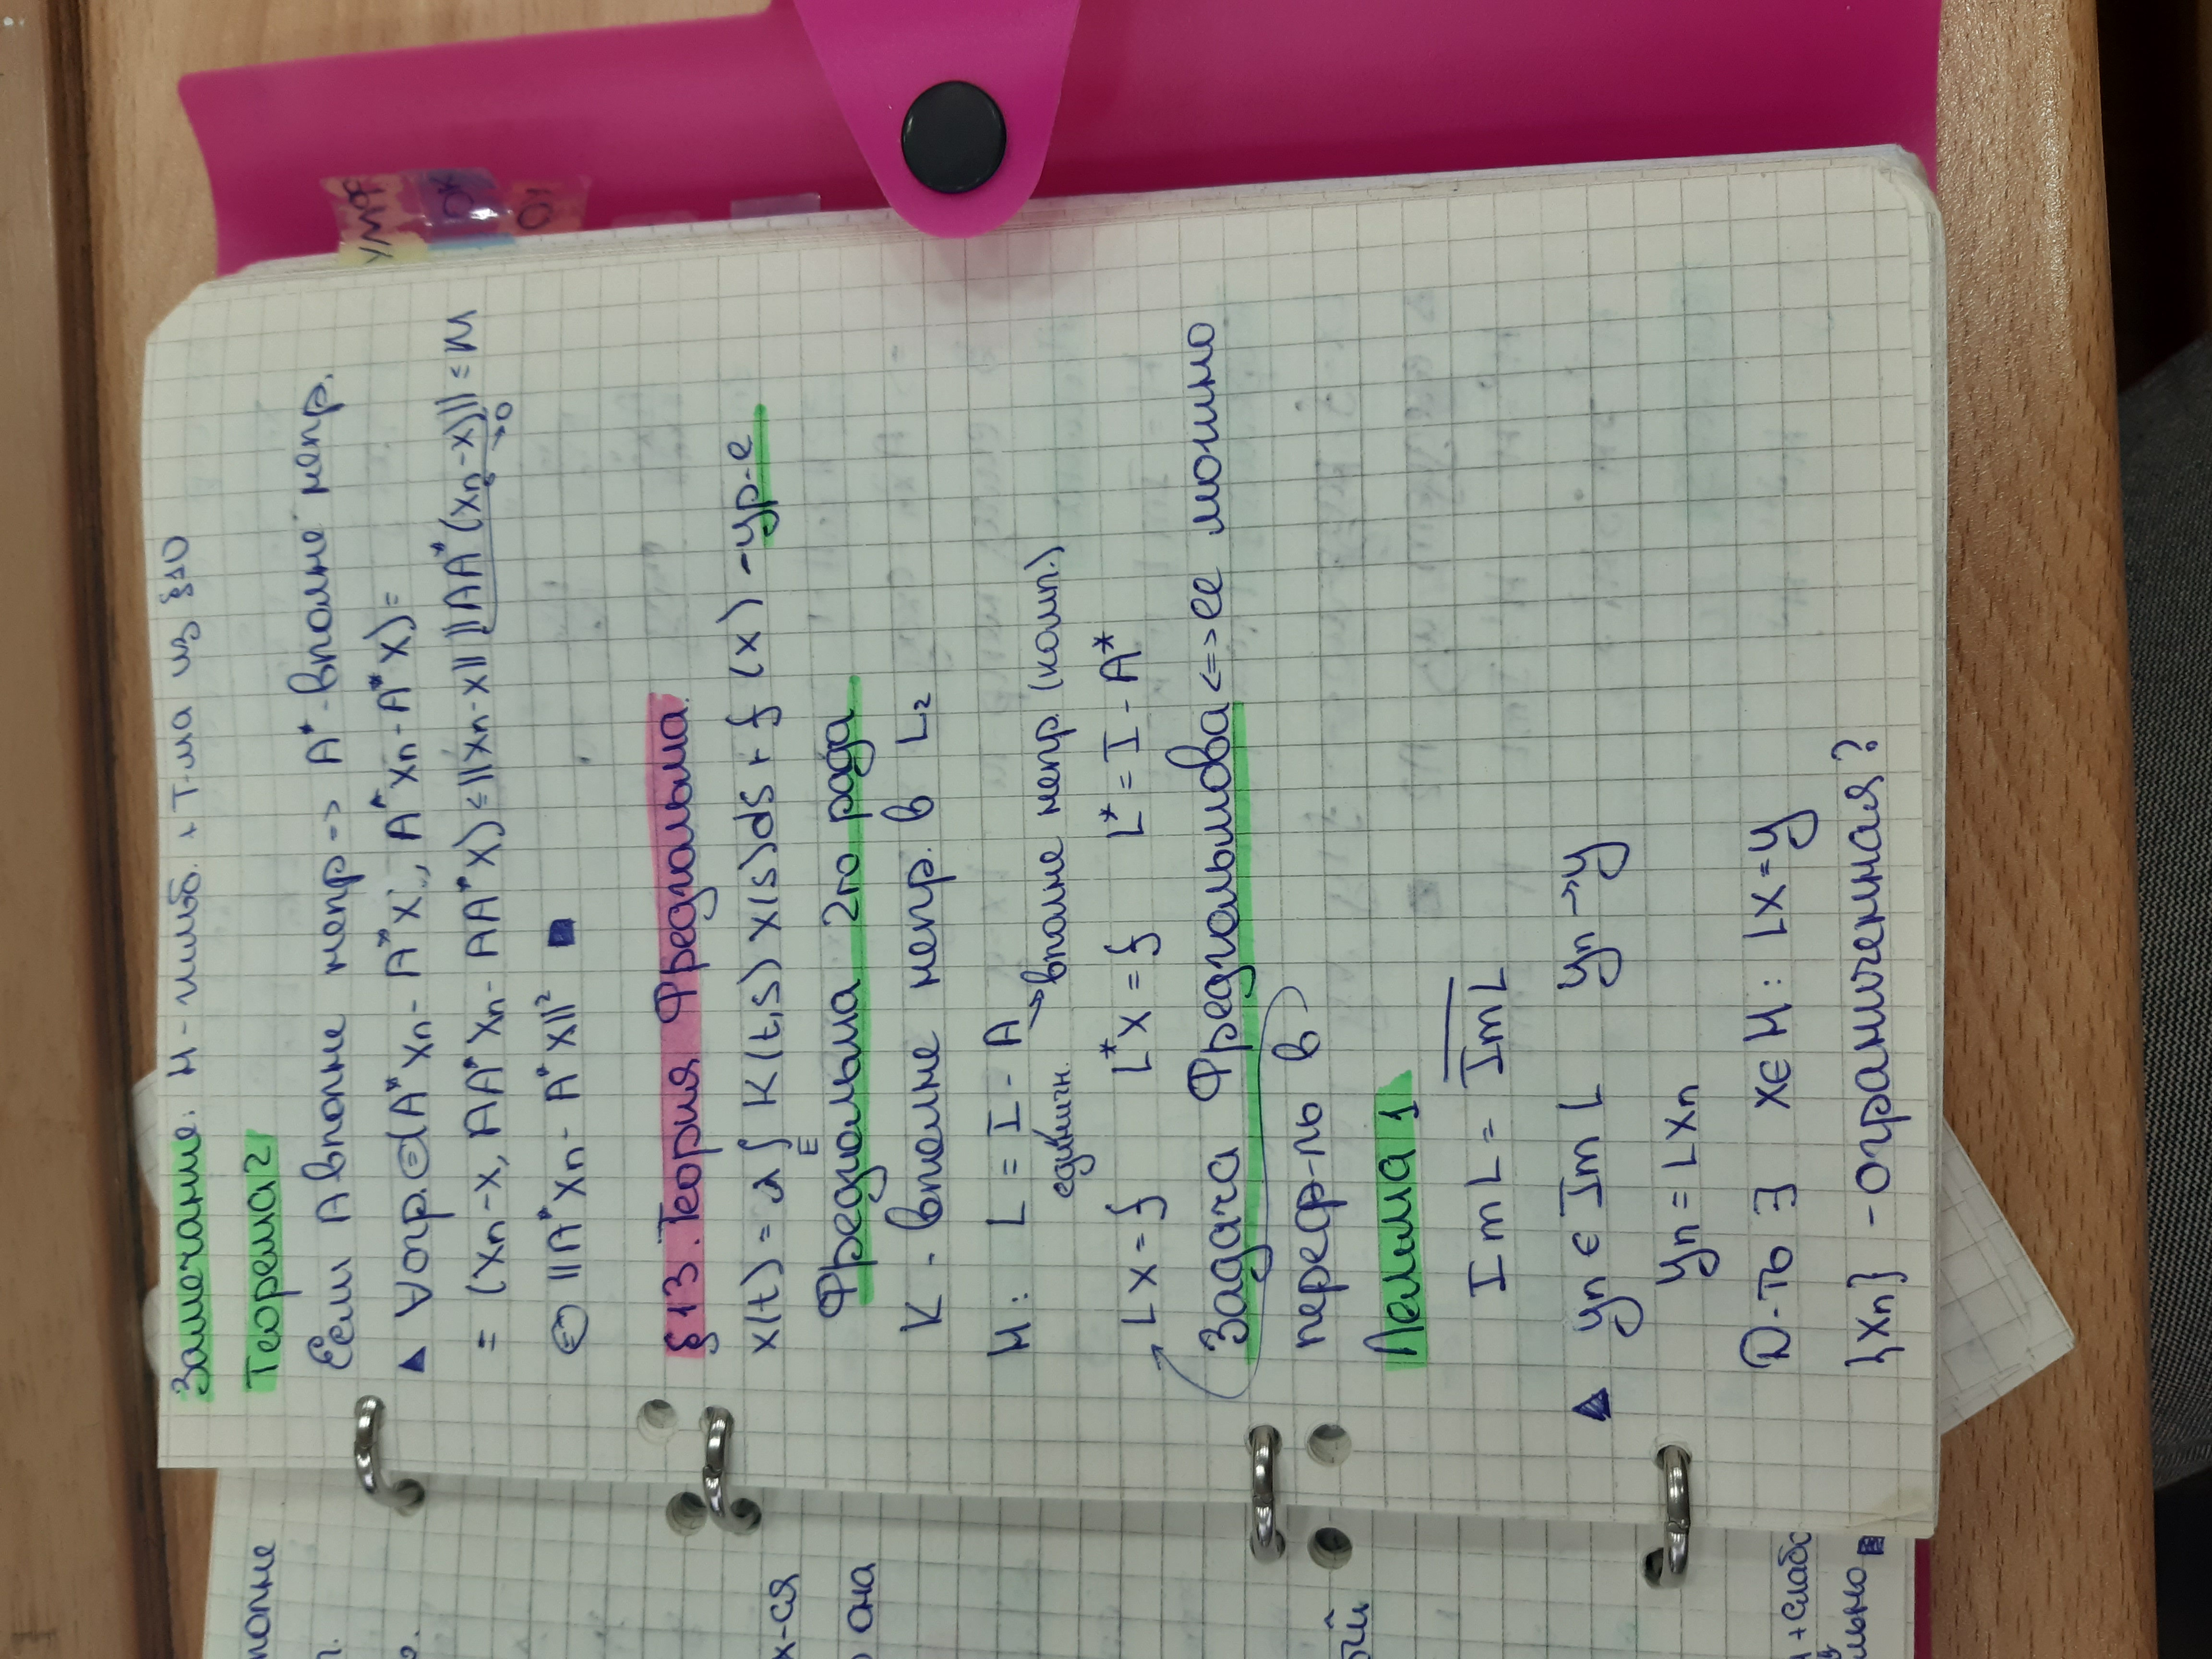 Замечание: H - гильб. + Т-ма из §10
Теорема 2
Если A вполне непр => A* - вполне непр.
▲ \forall огр. (=) (A*xn - A*x, A*xn - A*x) =
= (xn - x, AA*xn - AA*x) ≤ ||xn - x|| ||AA*(xn - x)|| ≤ M
→0
(=) ||A*xn - A*x||² ■
§13. Теория Фредгольма.
x(t) = λ ∫ K(t,s) x(s)ds + f(x) - ур-е
E
Фредгольма 2го рода
K - вполне непр. в L2
H: L = I - A → вполне непр. (комп.)
единичн.
Lx = f L*x = f L* = I - A*
Задача Фредгольмова <=> ее можно
переф-ть в
Лемма 1
Im L = \overline{Im L}
▲ yn ∈ Im L yn → y
yn = Lxn
Д-ть ∃ x ∈ H: Lx = y
{xn} - ограниченная?
УМФ
ОК
вполне
х-ся
она
ый
+ слабо
■